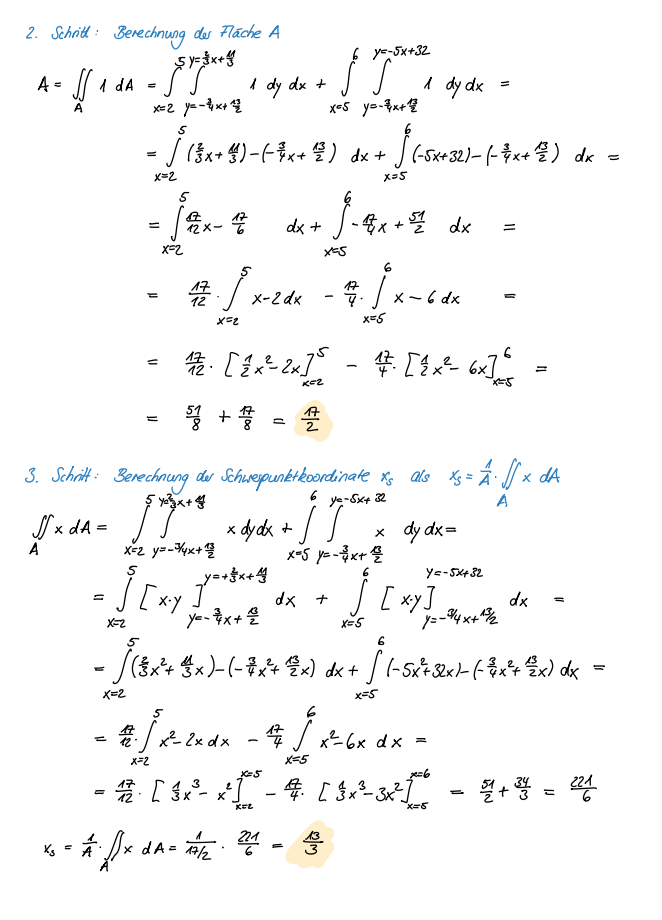 2. Schritt: Berechnung der Fläche A
A = ∬_A 1 dA = ∫_{x=2}^{5} ∫_{y=-3/4x+13/2}^{y=2/3x+11/3} 1 dy dx + ∫_{x=5}^{6} ∫_{y=-3/4x+13/2}^{y=-5x+32} 1 dy dx =
= ∫_{x=2}^{5} (2/3x + 11/3) - (-3/4x + 13/2) dx + ∫_{x=5}^{6} (-5x+32) - (-3/4x + 13/2) dx =
= ∫_{x=2}^{5} 17/12x - 17/6 dx + ∫_{x=5}^{6} -17/4x + 51/2 dx =
= 17/12 · ∫_{x=2}^{5} x-2 dx - 17/4 · ∫_{x=5}^{6} x-6 dx =
= 17/12 · [1/2x² - 2x]_{x=2}^{5} - 17/4 · [1/2x² - 6x]_{x=5}^{6} =
= 51/8 + 17/8 = 17/2
3. Schritt: Berechnung der Schwerpunktkoordinate x_s als x_s = 1/A · ∬_A x dA
∬_A x dA = ∫_{x=2}^{5} ∫_{y=-3/4x+13/2}^{y=2/3x+11/3} x dy dx + ∫_{x=5}^{6} ∫_{y=-3/4x+13/2}^{y=-5x+32} x dy dx =
= ∫_{x=2}^{5} [x·y]_{y=-3/4x+13/2}^{y=+2/3x+11/3} dx + ∫_{x=5}^{6} [x·y]_{y=-3/4x+13/2}^{y=-5x+32} dx =
= ∫_{x=2}^{5} (2/3x² + 11/3x) - (-3/4x² + 13/2x) dx + ∫_{x=5}^{6} (-5x²+32x) - (-3/4x² + 13/2x) dx =
= 17/12 · ∫_{x=2}^{5} x²-2x dx - 17/4 ∫_{x=5}^{6} x²-6x dx =
= 17/12 · [1/3x³ - x²]_{x=2}^{x=5} - 17/4 · [1/3x³ - 3x²]_{x=5}^{x=6} = 51/2 + 34/3 = 221/6
x_s = 1/A · ∬_A x dA = 1/(17/2) · 221/6 = 13/3